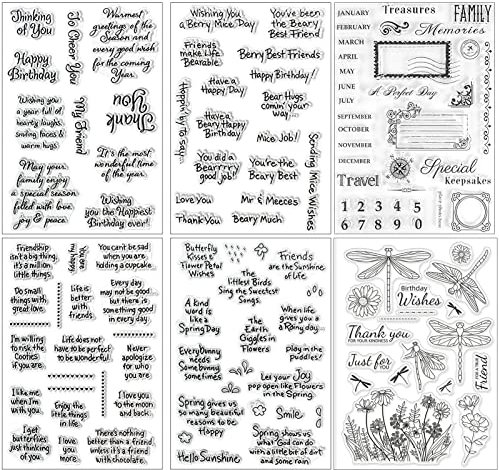 Thinking
of You
Happy
Birthday
To Cheer You
Warmest
greetings of the
Season and
every good wish
for the coming
Year.
Wishing you
a year full of
hearty laughs,
smiling faces &
warm hugs.
My Friend
Thank
You
It's the most
wonderful time
of the year.
May your
family enjoy
a special season
filled with love
joy & peace.
Wishing
you the Happiest
Birthday ever!
Wishing You
a Berry Mice Day
You've been
the Beary
Best Friend
Friends
make Life
Bearable
Berry Best Friends
Happy to say...
Have a
Happy
Day!
Bear Hugs
comin' your
way...
Have a
Beary Happy
Birthday
Mice Job!
Spring Mice Wishes
You did a
Bearrrry
good job!
You're the
Beary
Best!
Love You
Mr & Meeces
Thank You
Beary Much
JANUARY
FEBRUARY
MARCH
APRIL
MAY
JUNE
JULY
SEPTEMBER
OCTOBER
NOVEMBER
DECEMBER
Treasures
FAMILY
Memories
A Perfect Day
Special
Keepsakes
Travel
1 2 3 4 5
6 7 8 9 0
Friendship
isn't a big thing,
it's a million
little things.
You are
my happy.
You can't be sad
when you are
holding a cupcake.
Do Small
things with
great love.
Life is
better with
friends.
Every day
may not be good
but there is
something good
in every day.
I'm willing
to risk the
Cooties if
you are.
Life does not
have to be perfect
to be wonderful.
Never
apologize
for who
you are.
I like me
when I'm
with you.
Enjoy the
little things
in life.
I love you
to the moon
and back.
I get
butterflies
just thinking
of you.
I love
you
more.
There's nothing
better than a friend,
unless it's a friend
with chocolate.
Butterfly
Kisses &
Flower Petal
Wishes
Friends
are the Sunshine
of Life
The
littlest Birds
Sing the Sweetest
Songs.
A kind
word is
like a
Spring Day
The
Earth
Giggles in
Flowers
When life
gives you a
Rainy day
play in the
puddles!
Every Bunny
needs
Some bunny
sometimes
Let your Joy
pop open like Flowers
in the Spring
Spring gives us
so many beautiful
reasons to be
Happy
Smile
Hello Sunshine
Spring shows us
what God can do
with a little bit of dirt
and some rain!
Birthday
Wishes
Thank you
FOR YOUR KINDNESS
Just for
You
Friend